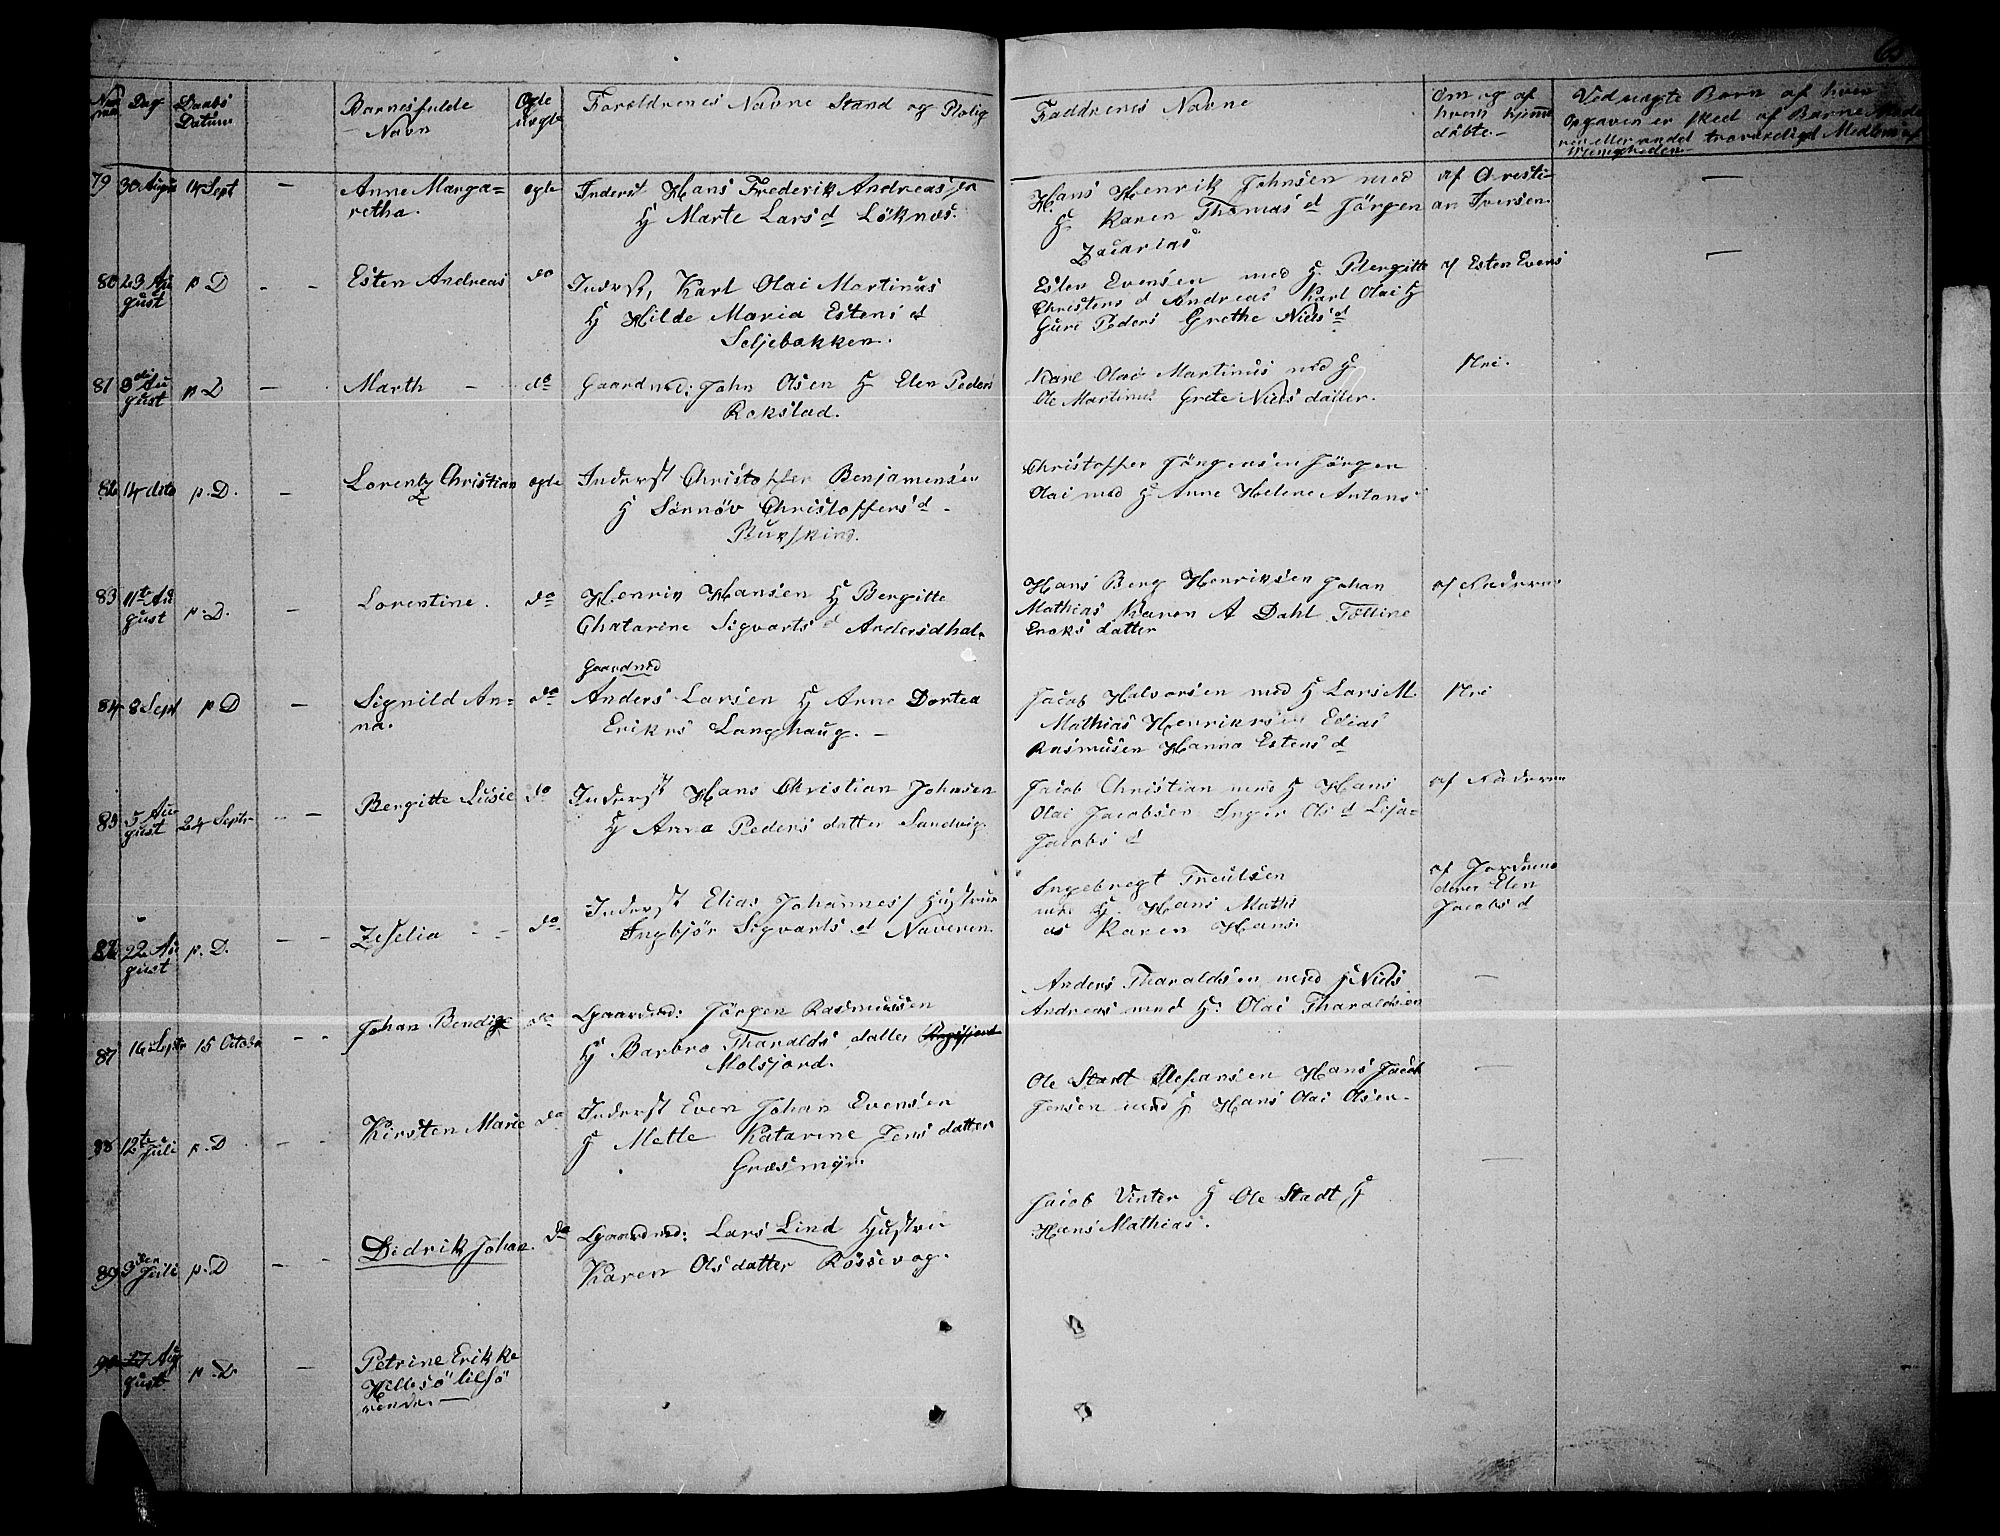 Dag
Daabs
Datum
Barnesfulde
Navn
Ægte
uægte
Foreldrenes Navne Stand og Bolig
Faddrenes Navne
Om og af
hvem hjemme
döbte.
Ved uægte Born af hvem
Opgaven er skeed af Barne
eller andet troværdigt Medlem af
Menigheden
79 30 August 14 Sept - Anne Marga=
retha.
ægte
Inderst Hans Frederik Andreas
H Marte Lars d Löknæs.
Hans Henrik Johnsen med
H Karen Thomas d Jörgen
Zacarias
af Christi-
an Iversen
80 23 Au
gust
p D - - Esten Andreas do
Inderst, Karl Olai Martinus
H Hilde Maria Estens d
Seljebakken.
Esten Evensen med H Bergitte
Christens d Andreas Karl Olai H
Guri Peders Grethe Niels d
af Esten Evens
81 3 Au
gust
p D - Marth - do
Gaardmd: John Olsen H Elen Peders
Rokstad.
Karl Olai Martinus med H
Ole Martinus Grete Niels datter.
Pri.
14 dito p. D. - Lorentz Christian ægte
Inderst Christoffer Benjaminsen
H Sønnöv Christoffers d -
Christoffer Jörgensen Jörgen
Olai med H Anne Helene Antons
83 11te Au
gust
p. D. - Lorentine. do
Henrik Hansen H Bergitte
Chatarine Sigvarts d Andersdhal.
Hans Berg Henriksen Johan
Mathias Karen A Dahl Tolline
Enoks datter
af Faderen
84 8 Sept p D - Signild An=
na.
do
Gaardmd
Anders Larsen H Anne Dortea
Eriks Langhaug. -
Jacob Halvorsen med H Lars M.
Mathias Henriksen Elias
Rasmusen Hanna Estens d
Pri
85 5 Au-
gust
24 Septr - - Bergitte Lusie do
Inderst Hans Christian Johnsen
H Anna Peders datter Sandvig
Jacob Christian med H Hans
Olai Jacobsen Inger Ols d Lisa=
Jacobs d
af Faderen
86 22 Au
gust
p. D. - - Zeselia - - do
Inderst Elias Johannes Hustrue
Ingbjör Sigvarts d Naveren.
Ingebregt
med H. Hans Mathi
as Karen Hans.
af Jordemo
deren Elen
Jacobs d
87 16 Septr 15 Octobr - - Johan Bendix do
Gaardmd: Jörgen Rasmusen
H Barbro Tharalds datter
Molsjord.
Anders Tharaldsen med H Niels
Andreas med H: Olai Tharaldsen
-
88 12te
Juli
p. D - - Kirsten Marie do
Inderst Even Johan Evensen
H Mette Katarine Jens datter
Græsmyr.
Ole Stadt Hans Jacob
Jensen med H Hans Olai Olsen.
-
89 3
Juli
p. D - - Didrik Johan. do
Gaardmd: Lars Lind Hustrue
Karen Olsdatter Rössevog.
Jacob Vinter H Ole Stadt H
Hans Mathias.
90 27 Aug
gust
p. D. - Petrine Erikke